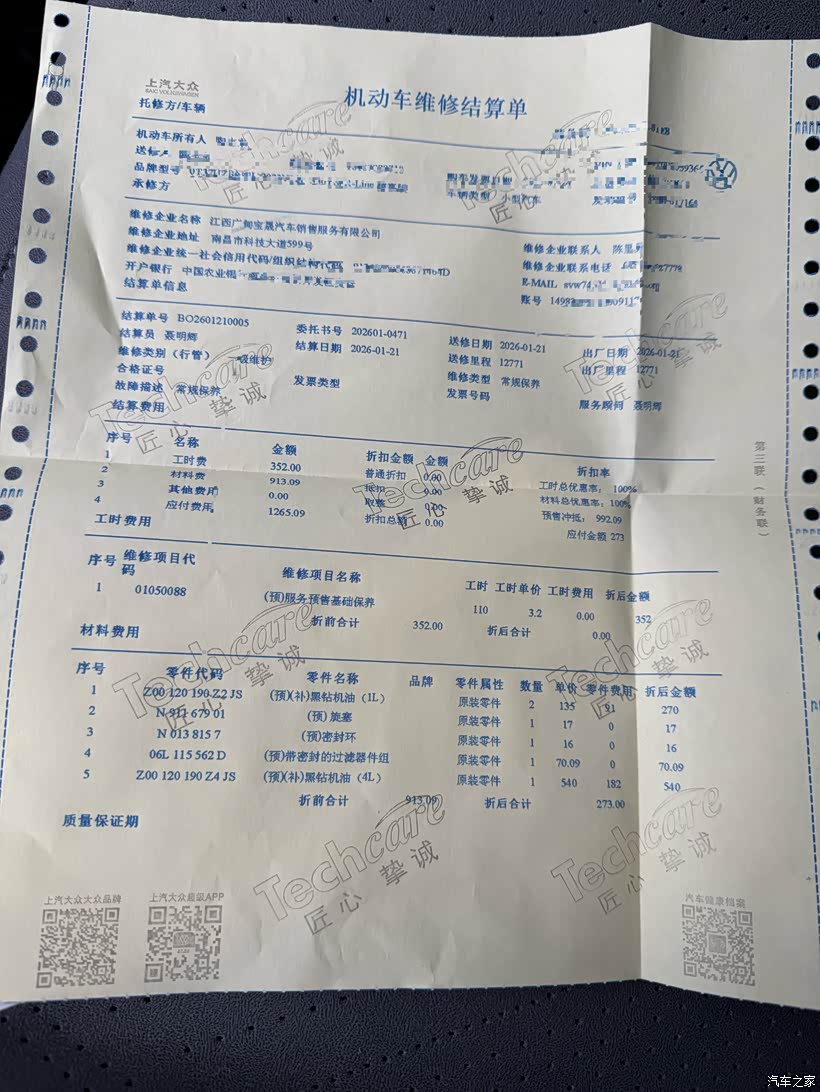 上汽大众
SAIC VOLKSWAGEN
机动车维修结算单
托修方/车辆
机动车所有人
品牌型号
车辆类型 小型汽车
承修方
维修企业名称 江西广甸宝晟汽车销售服务有限公司
维修企业联系人
维修企业地址 南昌市科技大道599号
维修企业联系电话
维修企业统一社会信用代码/组织结构代码
E-MAIL
开户银行 中国农业银
账号
结算单信息
结算单号 BO2601210005
委托书号 202601-0471
送修日期 2026-01-21
出厂日期 2026-01-21
结算员 聂明辉
结算日期 2026-01-21
送修里程 12771
出厂里程 12771
维修类别（行管） 一级维护
维修类型 常规保养
合格证号
发票类型
发票号码
故障描述 常规保养
服务顾问 聂明辉
结算费用
序号 名称 金额 折扣金额 金额 折扣率
1 工时费 352.00 普通折扣 0.00 工时总优惠率： 100%
2 材料费 913.09 抵扣 0.00 材料总优惠率： 100%
3 其他费用 0.00 0.00 预售冲抵： 992.09
4 应付费用 1265.09 折扣总额 0.00 应付金额 273
工时费用
序号 维修项目代码 维修项目名称 工时 工时单价 工时费用 折后金额
1 01050088 (预)服务预售基础保养 110 3.2 0.00 352
折前合计 352.00 折后合计 0.00
材料费用
序号 零件代码 零件名称 品牌 零件属性 数量 单价 零件费用 折后金额
1 Z00 120 190 Z2 JS (预)(补)黑钻机油（1L） 原装零件 2 135 91 270
2 N 911 679 01 (预) 旋塞 原装零件 1 17 0 17
3 N 013 815 7 (预)密封环 原装零件 1 16 0 16
4 06L 115 562 D (预)带密封的过滤器件组 原装零件 1 70.09 0 70.09
5 Z00 120 190 Z4 JS (预)(补)黑钻机油（4L） 原装零件 1 540 182 540
折前合计 913.09 折后合计 273.00
质量保证期
第三联（财务联）
上汽大众大众品牌
上汽大众超级APP
汽车健康档案
Techcare
匠心 挚诚
Techcare
匠心 挚诚
Techcare
匠心 挚诚
Techcare
匠心 挚诚
Techcare
匠心 挚诚
Techcare
匠心 挚诚
Techcare
匠心 挚诚
Techcare
匠心 挚诚
Techcare
匠心 挚诚
汽车之家